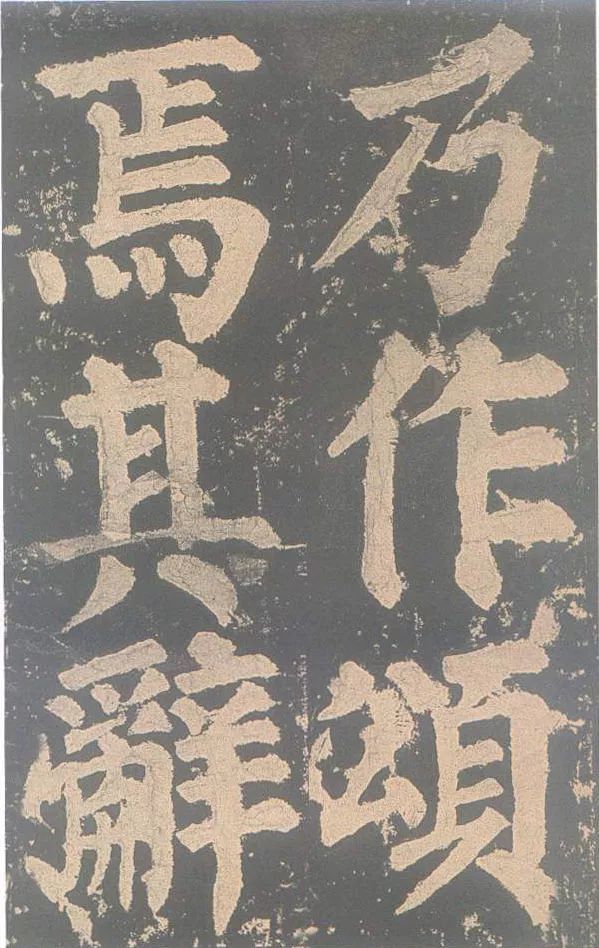 乃作頌
焉其辭